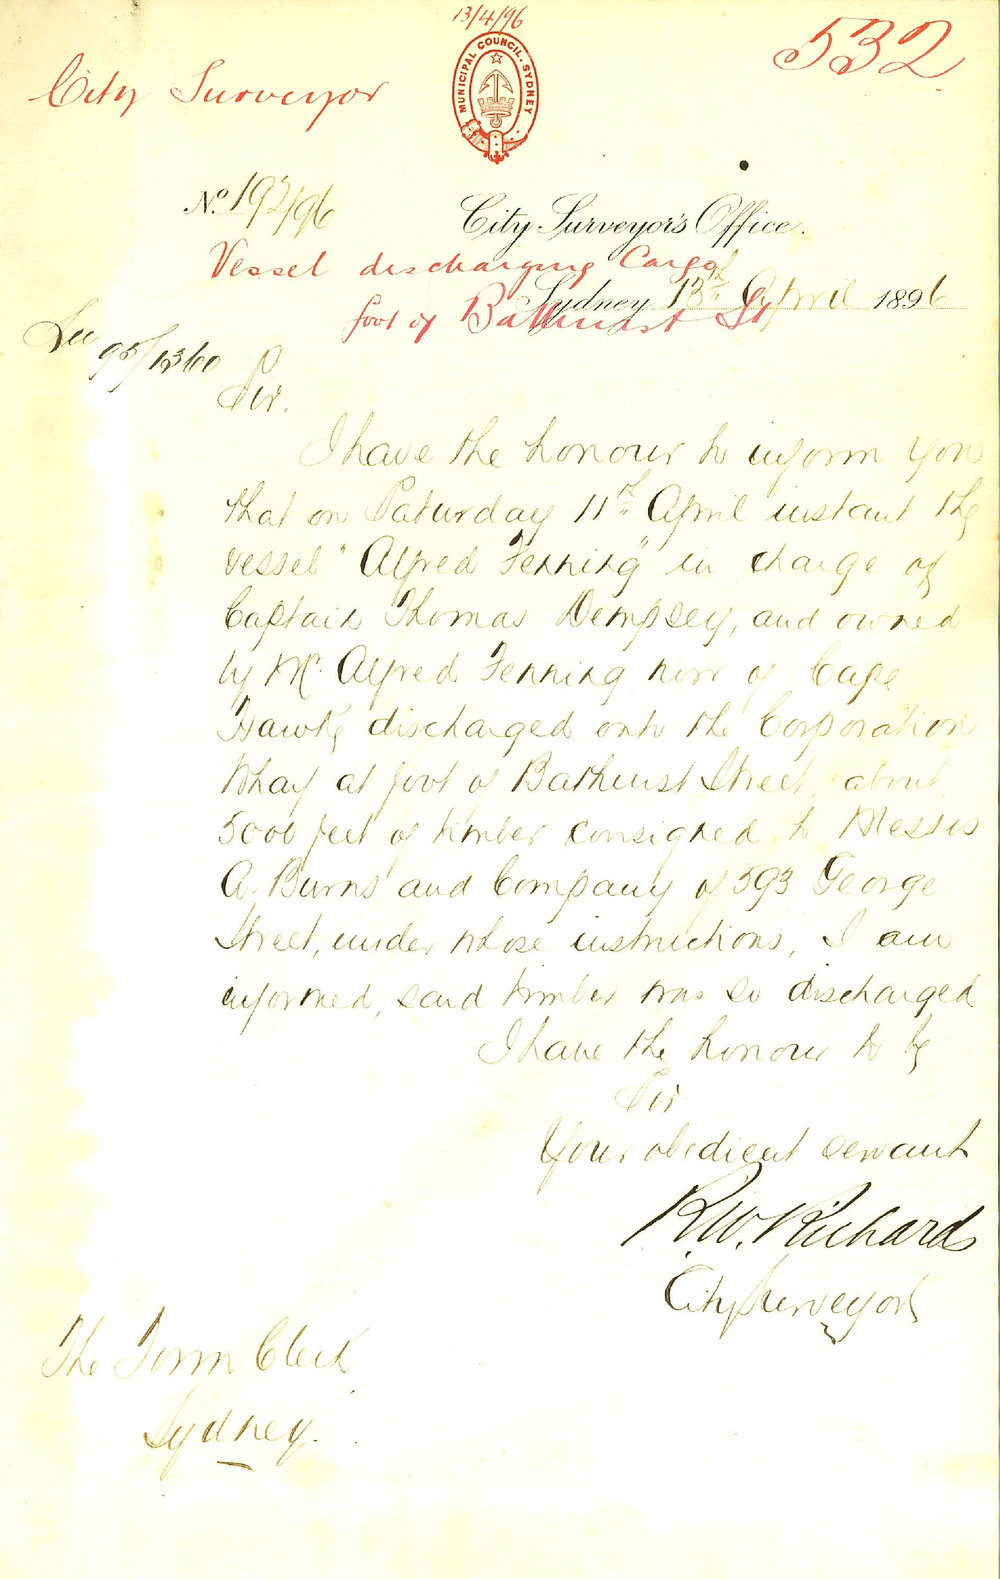 13/4/96
532
City Surveyor
MUNICIPAL COUNCIL. SYDNEY
No. 192/96
City Surveyor's Office.
Vessel discharging Cargo
Sydney 13th April 1896
foot of Bathurst St
See 95/1360
Sir.
I have the honour to inform you
that on Saturday 11th April instant the
vessel "Alfred Fenning" in charge of
Captain Thomas Dempsey, and owned
by Mr. Alfred Fenning now of Cape
Hawke discharged onto the Corporation
Wharf at foot of Bathurst Street, about
5000 feet of timber consigned to Messrs
A. Burns and Company of 593 George
Street, under whose instructions, I am
informed, said timber was so discharged
I have the honour to be
Sir
Your obedient servant
R.W. Richards
City Surveyor
The Town Clerk
Sydney.